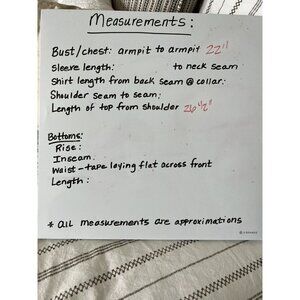 Measurements:
Bust/chest: armpit to armpit 22"
Sleeve length: to neck seam
Shirt length from back seam @ collar:
Shoulder seam to seam:
Length of top from shoulder 26 1/2"
Bottoms:
Rise:
Inseam
Waist - tape laying flat across front
Length:
* all measurements are approximations